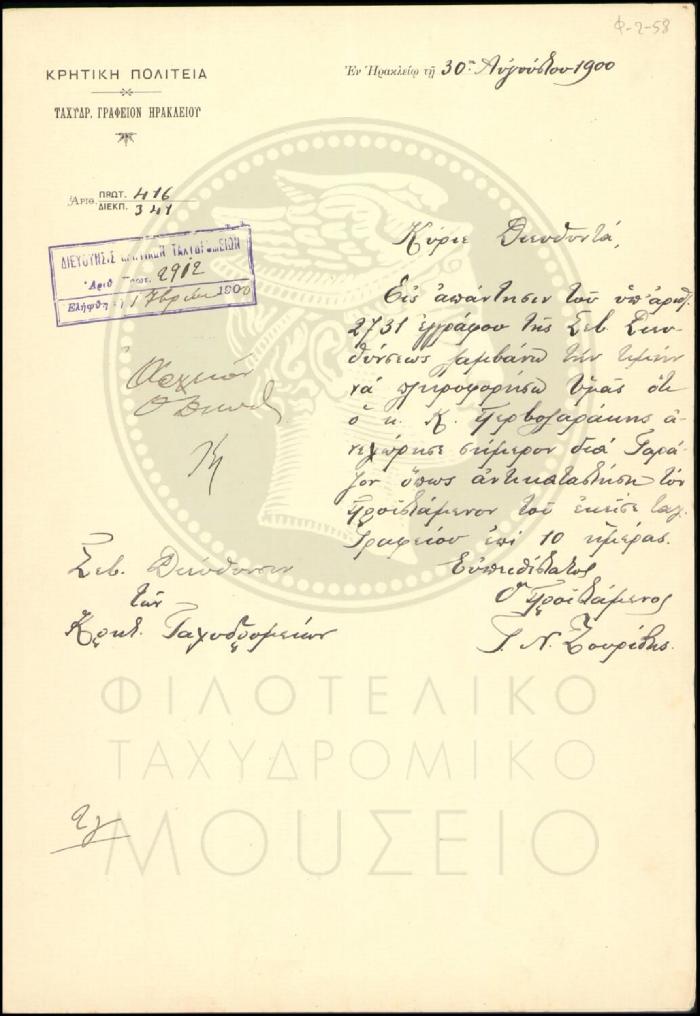 Φ-2-58
ΚΡΗΤΙΚΗ ΠΟΛΙΤΕΙΑ
ΤΑΧΥΔΡ. ΓΡΑΦΕΙΟΝ ΗΡΑΚΛΕΙΟΥ
Ἐν Ἡρακλείῳ τῇ 30 Αὐγούστου 1900
Ἀριθ. ΠΡΩΤ. 416
ΔΙΕΚΠ. 341
ΔΙΕΥΘΥΝΣΙΣ ΚΡΗΤΙΚΩΝ ΤΑΧΥΔΡΟΜΕΙΩΝ
Ἀριθ. Πρωτ. 2912
Ἐλήφθη τῇ 1 7βρίου 1900
Κύριε Διευθυντά,
Εἰς ἀπάντησιν τοῦ ὑπ' ἀριθ.
2731 ἐγγράφου τῆς Σεβ. Διευ
θύνσεως λαμβάνω τὴν τιμὴν
νὰ πληροφορήσω ὑμᾶς ὅτι
ὁ κ. Κ. Περβολαράκης ἀ
νεχώρησε σήμερον διὰ Γαρά
ζον ὅπως ἀντικαταστήσῃ τὸν
προϊστάμενον τοῦ ἐκεῖσε ταχ.
Γραφείου ἐπὶ 10 ἡμέρας.
Εὐπειθέστατος
Ὁ Προϊστάμενος
Ι. Ν. Ζουρίδης.
Ἀρχεῖον
Ὁ Διευθ
Σεβ. Διεύθυνσιν
τῶν
Κρητ. Ταχυδρομείων
ΦΙΛΟΤΕΛΙΚΟ
ΤΑΧΥΔΡΟΜΙΚΟ
ΜΟΥΣΕΙΟ